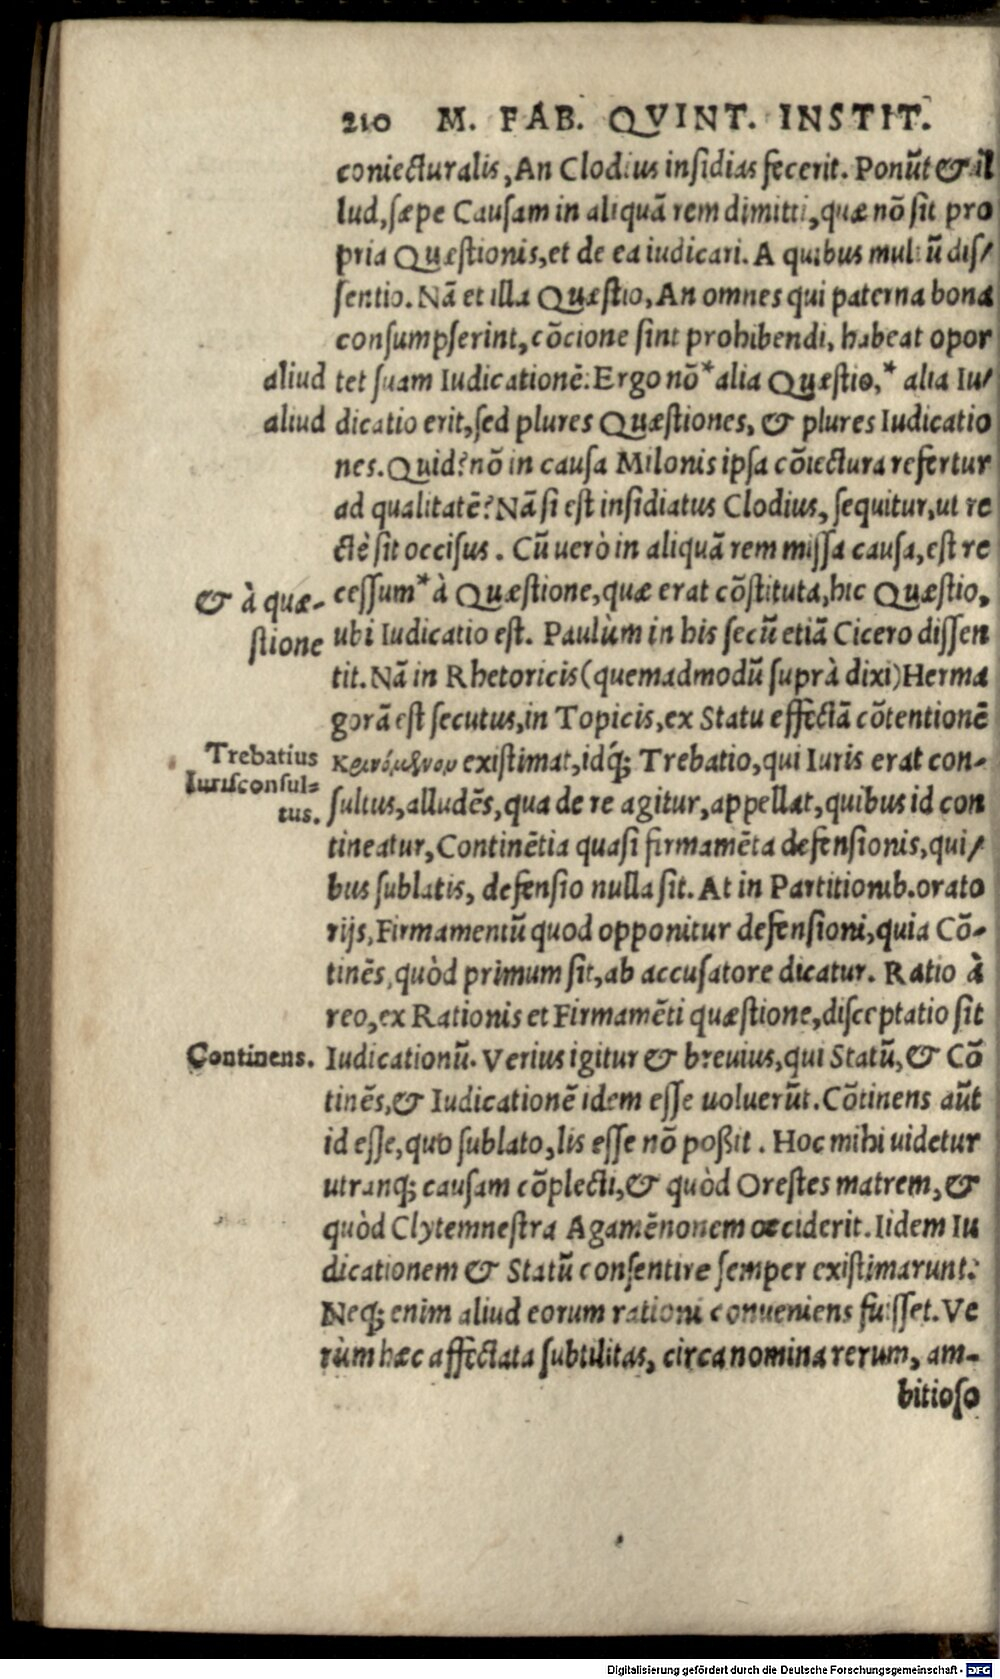 210 M. FAB. QVINT. INSTIT.
coniecturalis, An Clodius insidias fecerit. Ponūt & il
lud, sæpe Causam in aliquā rem dimitti, quæ nō sit pro
pria Quæstionis, et de ea iudicari. A quibus multū dis/
sentio. Nā et illa Quæstio, An omnes qui paterna bona
consumpserint, cōcione sint prohibendi, habeat opor
aliud tet suam Iudicationē: Ergo nō * alia Quæstio, * alia Iu/
aliud dicatio erit, sed plures Quæstiones, & plures Iudicatio
nes. Quid? nō in causa Milonis ipsa cōiectura refertur
ad qualitatē? Nā si est insidiatus Clodius, sequitur, ut re
ctè sit occisus. Cū uerò in aliquā rem missa causa, est re
& à quæ- cessum * à Quæstione, quæ erat cōstituta, hic Quæstio,
stione ubi Iudicatio est. Paulùm in his secū etiā Cicero dissen
tit. Nā in Rhetoricis (quemadmodū suprà dixi) Herma
gorā est secutus, in Topicis, ex Statu effectā cōtentionē
Trebatius κρινόμενον existimat, idq́; Trebatio, qui Iuris erat con-
Iurisconsul- sultus, alludēs, qua de re agitur, appellat, quibus id con
tus.
tineatur, Continētia quasi firmamēta defensionis, qui/
bus sublatis, defensio nulla sit. At in Partitionib. orato
rijs, Firmamentū quod opponitur defensioni, quia Cō-
tinēs, quòd primum sit, ab accusatore dicatur. Ratio à
reo, ex Rationis et Firmamēti quæstione, disceptatio sit
Continens. Iudicationū. Verius igitur & breuius, qui Statū, & Cō
tinēs, & Iudicationē idem esse uoluerūt. Cōtinens aūt
id esse, quo sublato, lis esse nō poßit. Hoc mihi uidetur
utranq; causam cōplecti, & quòd Orestes matrem, &
quòd Clytemnestra Agamēnonem occiderit. Iidem Iu
dicationem & Statū consentire semper existimarunt.
Neq; enim aliud eorum rationi conueniens fuisset. Ve
rùm hæc affectata subtilitas, circa nomina rerum, am-
bitioso
Digitalisierung gefördert durch die Deutsche Forschungsgemeinschaft - DFG